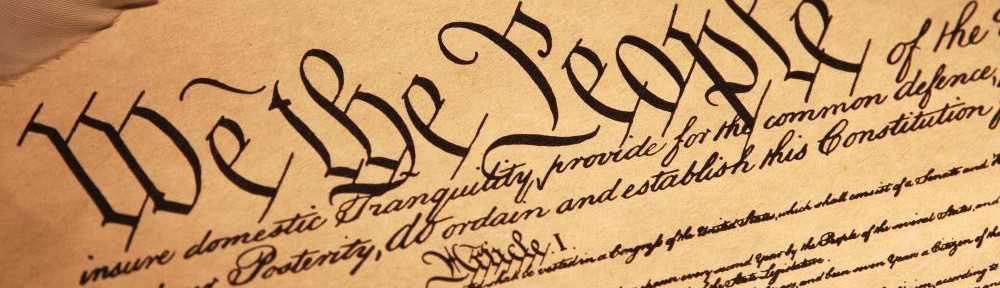 We the People of the
insure domestic Tranquility, provide for the common defence,
Posterity, do ordain and establish this Constitution
Article I.
vested in a Congress of the United States, which shall consist of a Senate and
every second Year by the People of the several States, and
of the State Legislature.
and been seven Years a Citizen of the
according to